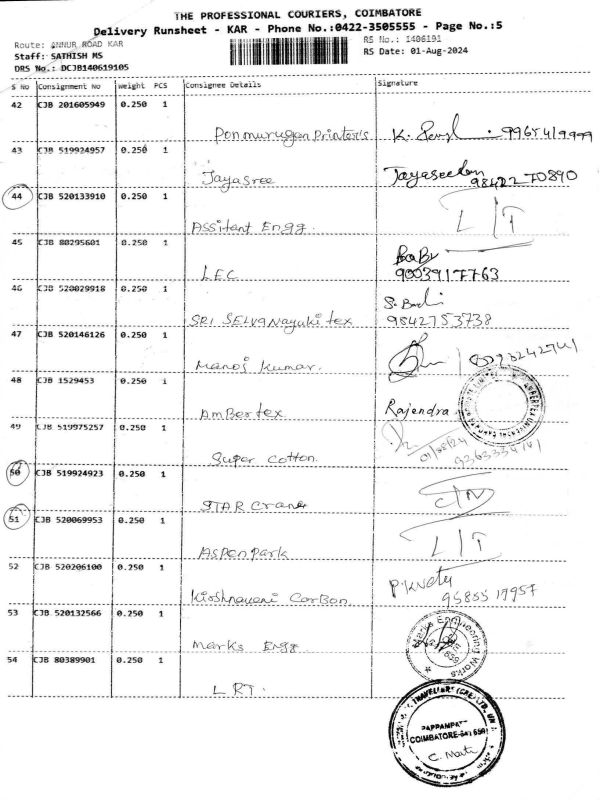 THE PROFESSIONAL COURIERS, COIMBATORE
Delivery Runsheet - KAR - Phone No.:0422-3505555 - Page No.:5
Route: ANNUR ROAD KAR
RS No.: I406191
Staff: SATHISH MS
RS Date: 01-Aug-2024
DRS No.: DCJB140619105
S No Consignment No Weight PCS Consignee Details Signature
42 CJB 201605949 0.250 1
Ponmurugan Printer's K.
43 CJB 519924957 0.250 1
Jayasree Jayaseelan
9842270890
44 CJB 520133910 0.250 1
Assitent Engg. L/T
45 CJB 80295601 0.250 1
LEC Babu
9003917763
46 CJB 520029918 0.250 1
SRI SELVANayaki tex 9842753738
47 CJB 520146126 0.250 1
Manoj Kumar.
48 CJB 1529453 0.250 1
AmBertex Rajendra
49 CJB 519975257 0.250 1
Super Cotton. 01/08/24
50 CJB 519924923 0.250 1
STAR Crane C/N
51 CJB 520069953 0.250 1
Aspenpark L/T
52 CJB 520206100 0.250 1
Kirshnaveni Carbon
53 CJB 520132566 0.250 1
Marks Engg Marks Engineering Works
54 CJB 80389901 0.250 1
LRT.
PAPPAMPATTI
COIMBATORE-641 659